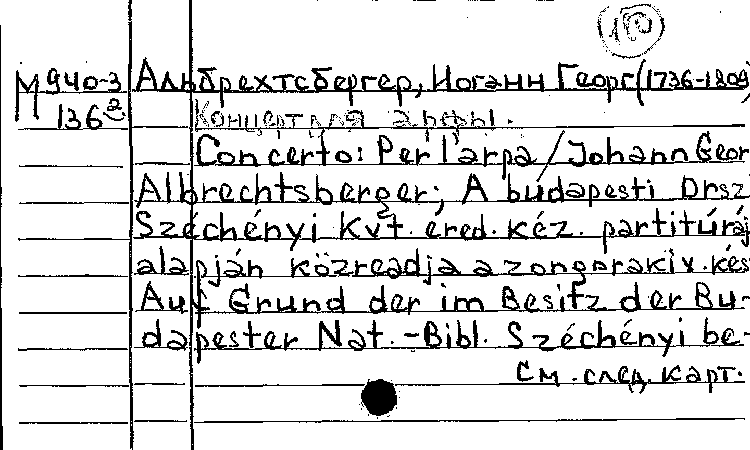 180
М 940-3 Альбрехтсбергер, Иоганн Георг (1736-1809)
136² Концерт для арфы.
Concerto: Per l'arpa / Johann Geor
Albrechtsberger; A budapesti Orsz
Széchényi Kvt. ered. kéz. partitúráj
alapján közreadja a zongorakiv. kés
Auf Grund der im Besitz der Bu-
dapester Nat.-Bibl. Széchényi be-
См. след. карт.